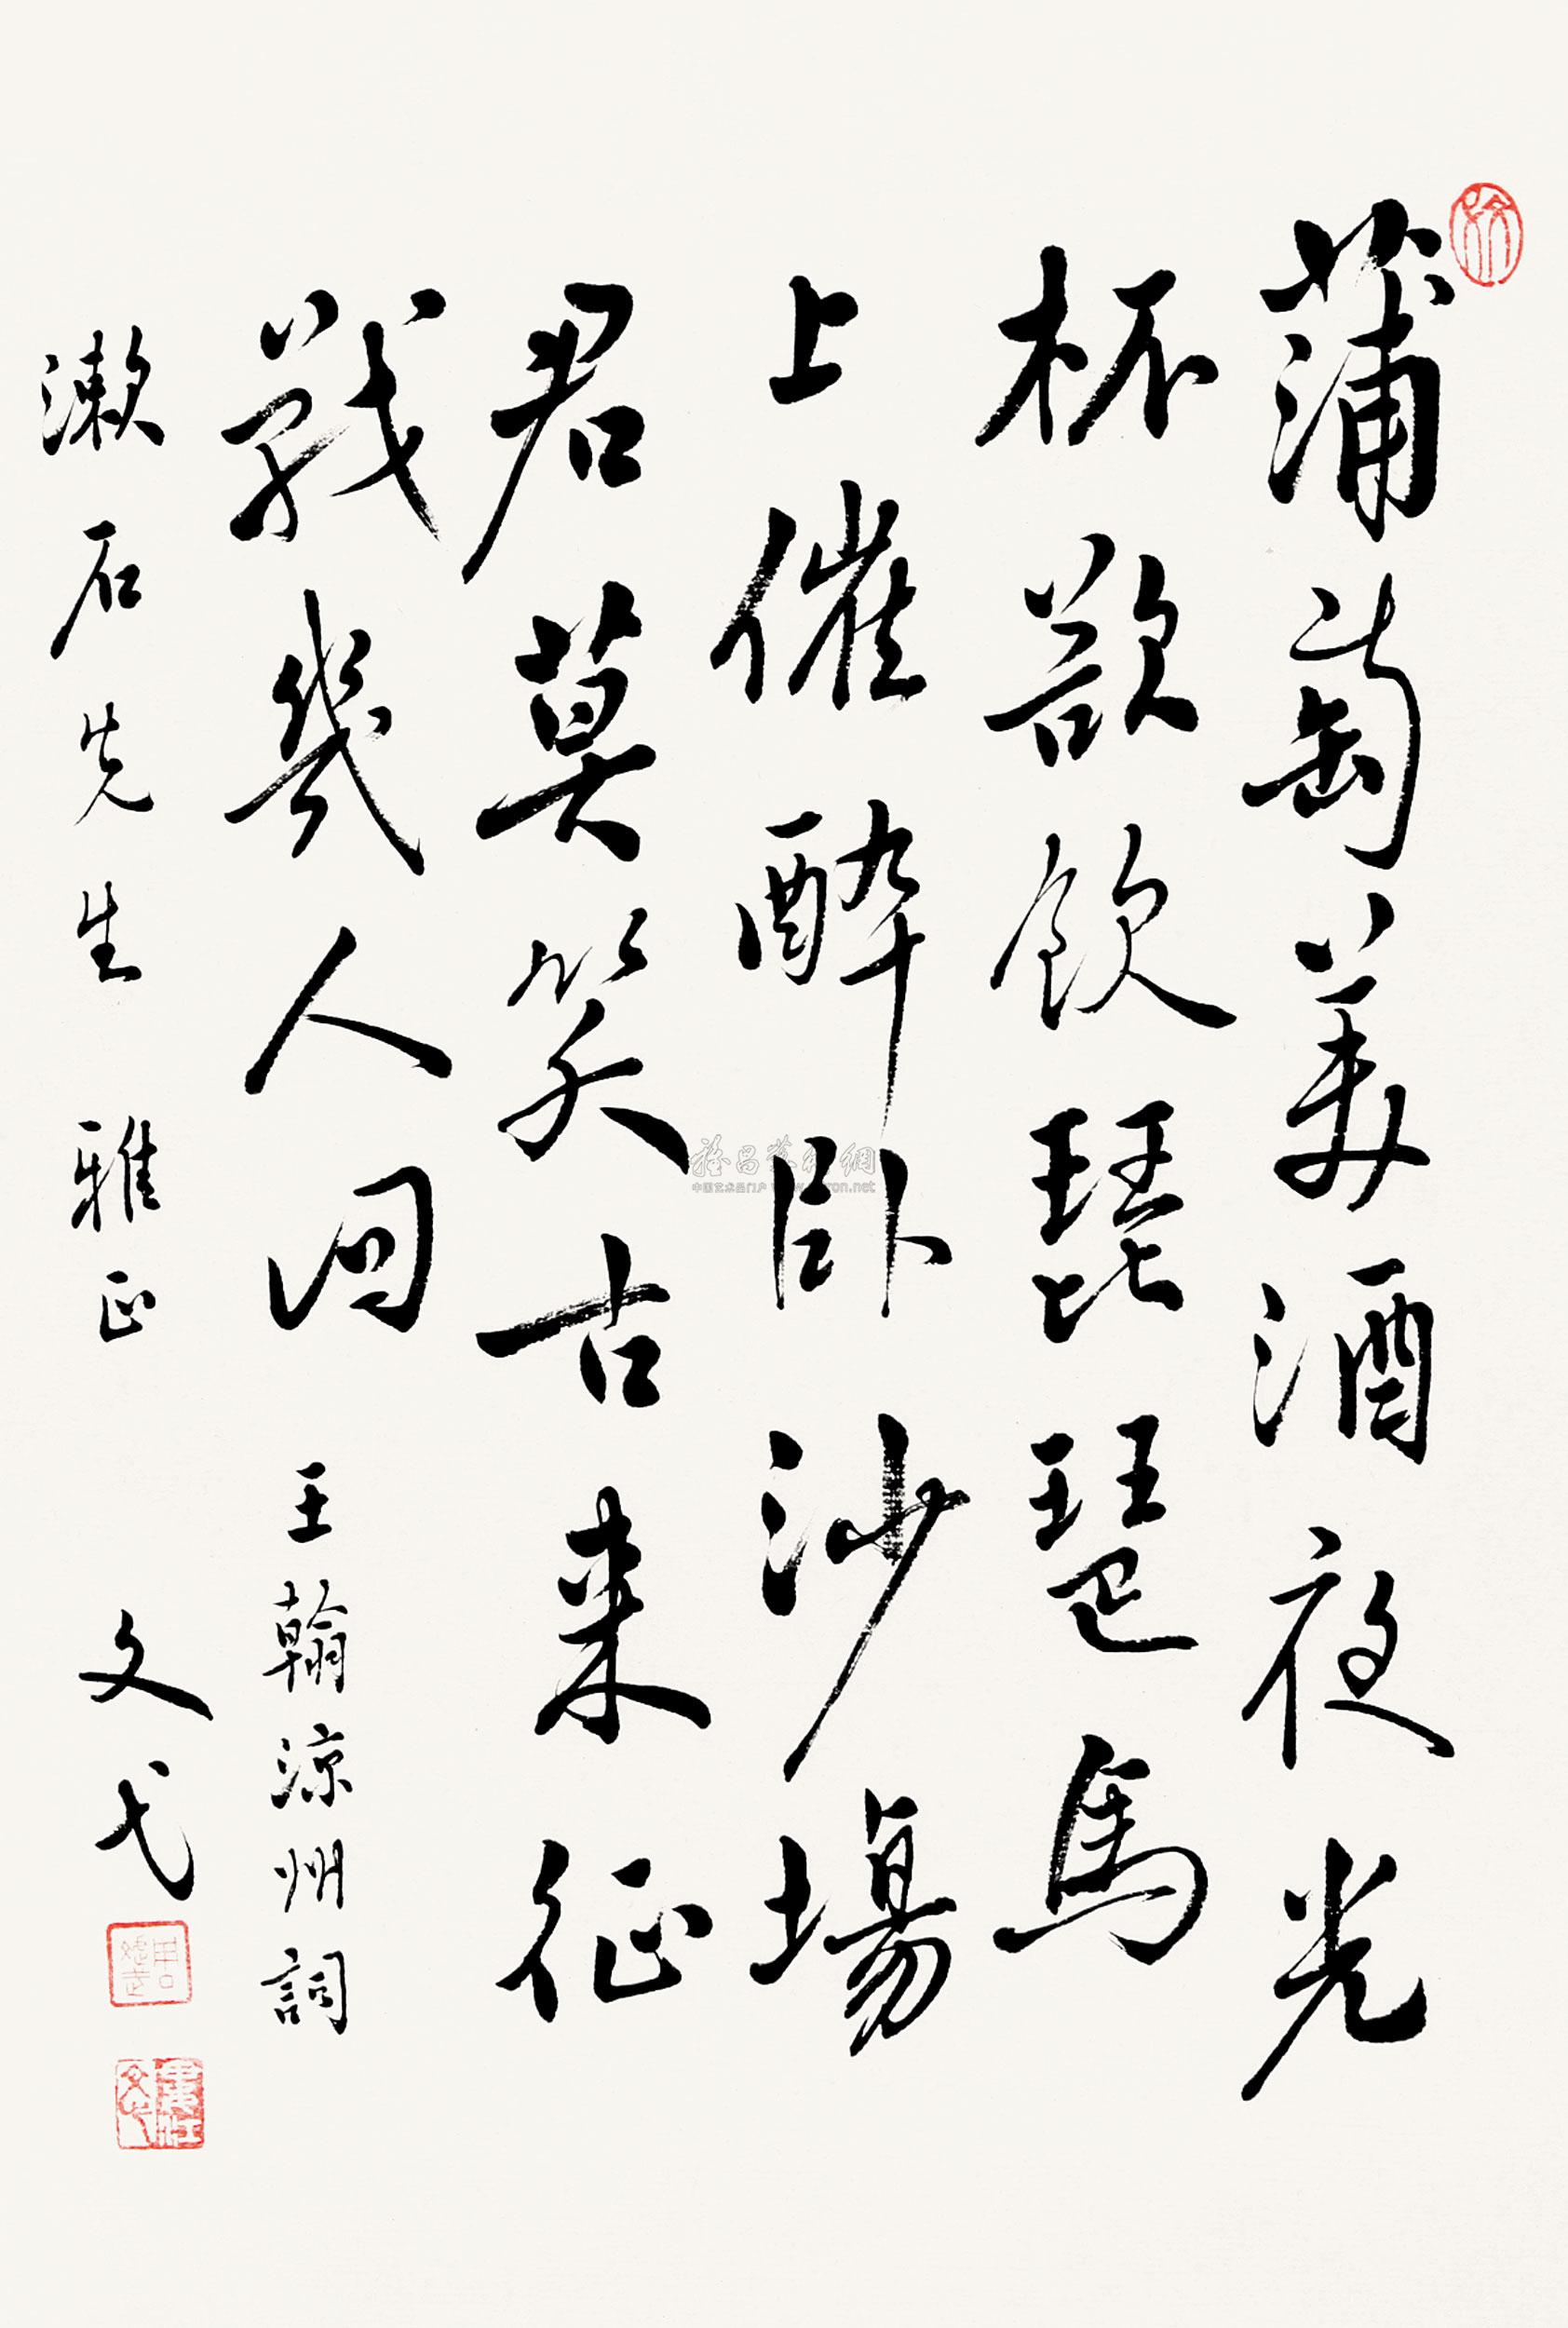 蒲萄美酒夜光
杯欲飲琵琶馬
上催醉卧沙場
君莫笑古来征
戰幾人回
王翰涼州詞
漱石先生雅正
文弋
中国艺术品门户